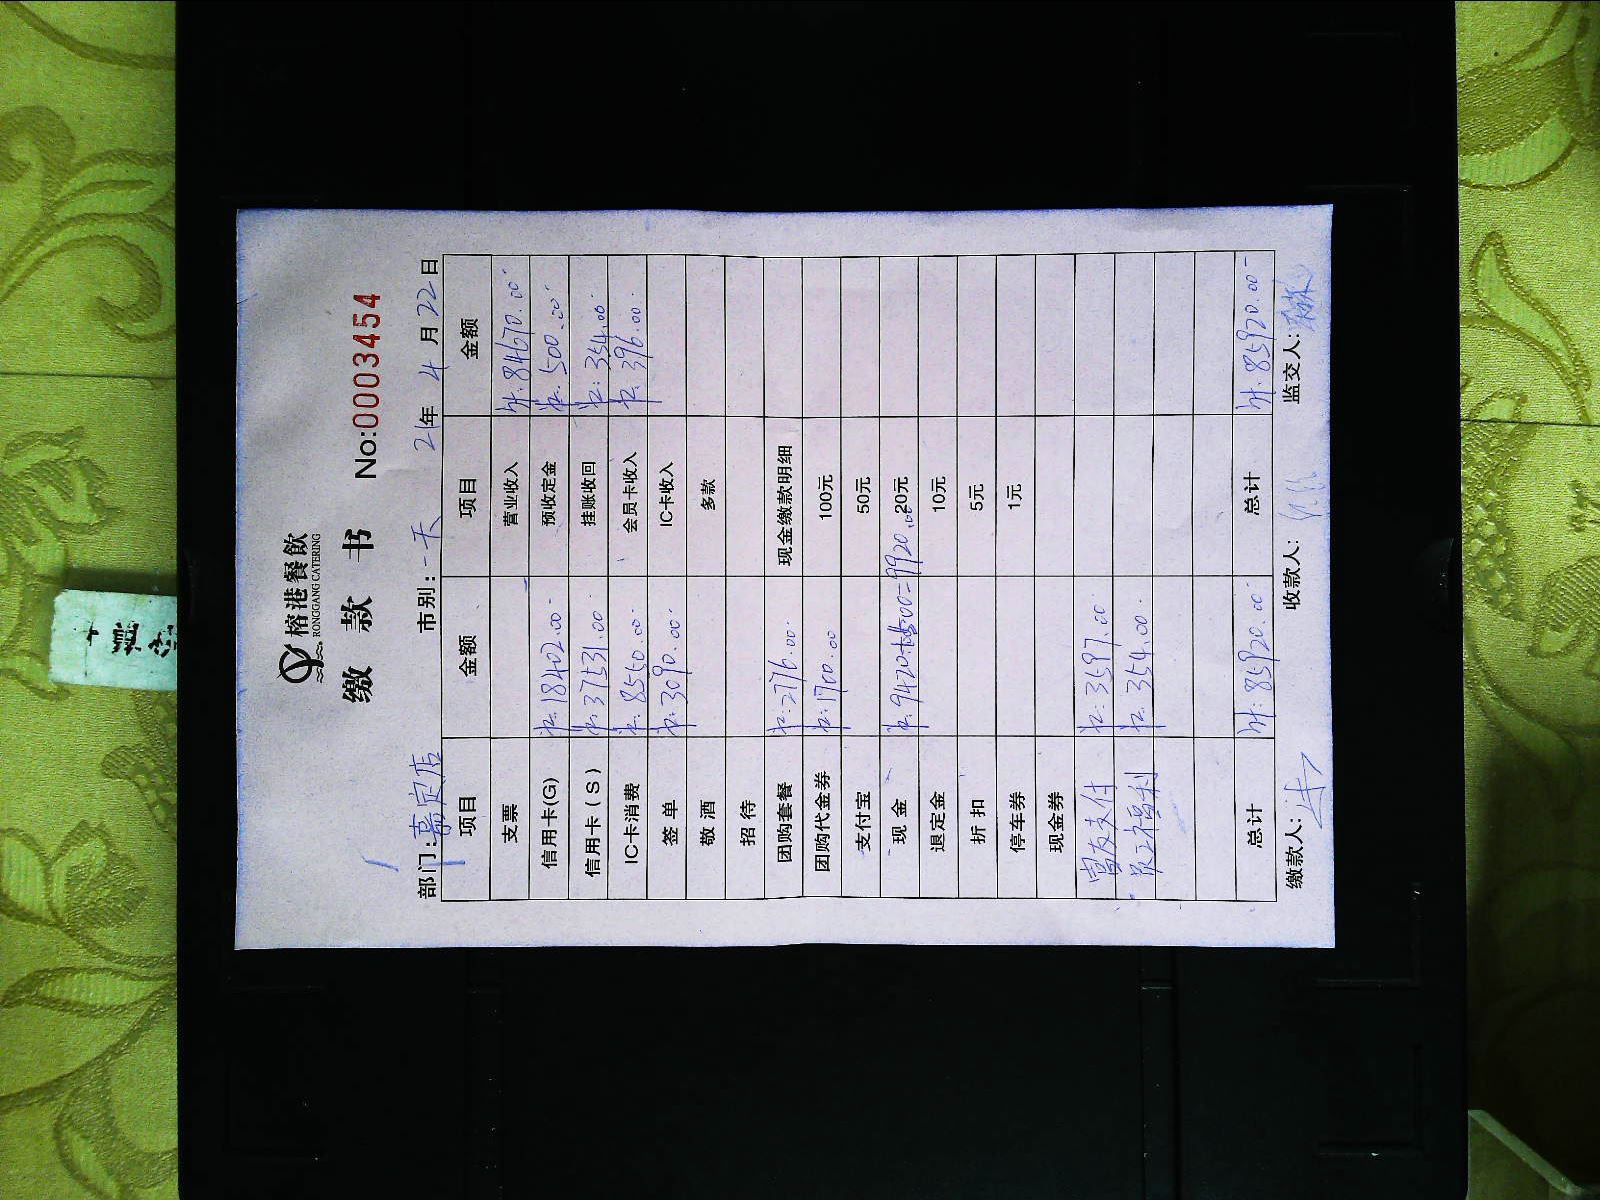 榕港餐飲
RONGGANG CATERING
缴款书
No:0003454
部门:嘉定店 市别:一天 21年4月22日
项目 金额 项目 金额
支票 营业收入 84670.00
信用卡(G) 18402.00 预收定金 500.00
信用卡(S) 37531.00 挂账收回 354.00
IC-卡消费 8550.00 会员卡收入 396.00
签单 3090.00 IC卡收入
敬酒 多款
招待
团购套餐 2776.00 现金缴款明细
团购代金券 1700.00 100元
支付宝 50元
现金 9420+500=9920.00 20元
退定金 10元
折扣 5元
停车券 1元
现金券
富友支付 3597.00
员工福利 354.00
总计 85920.00 总计 85920.00
缴款人: 收款人: 监交人: